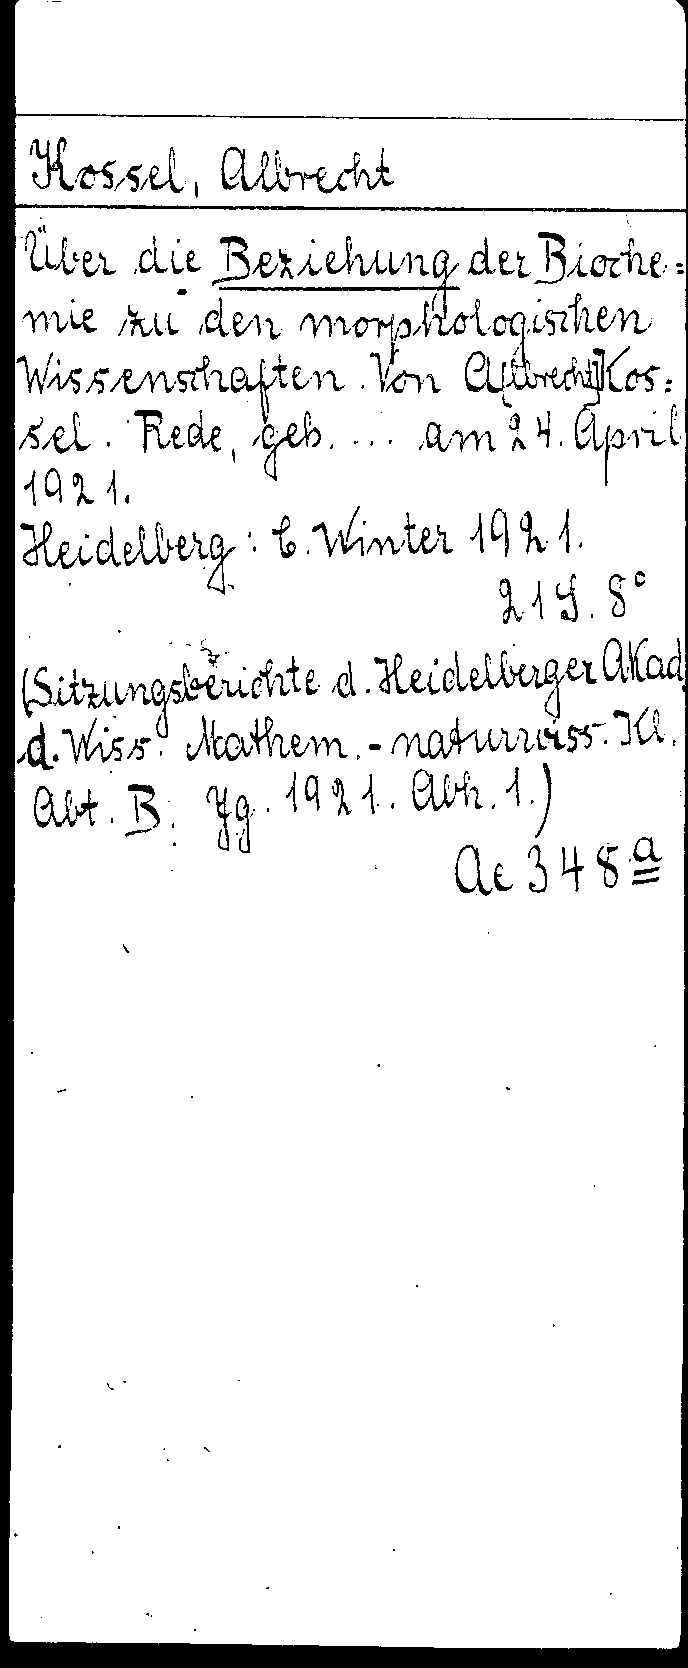 Kossel, Albrecht
Über die Beziehung der Bioche=
mie zu den morphologischen
Wissenschaften. Von A[lbrecht] Kos=
sel. Rede, geh. ... am 24. April
1921.
Heidelberg: C. Winter 1921.
21 S. 8°
(Sitzungsberichte d. Heidelberger Akad.
d. Wiss. Mathem.-naturwiss. Kl.
Abt. B. Jg. 1921. Abh. 1.)
Ac 348 a